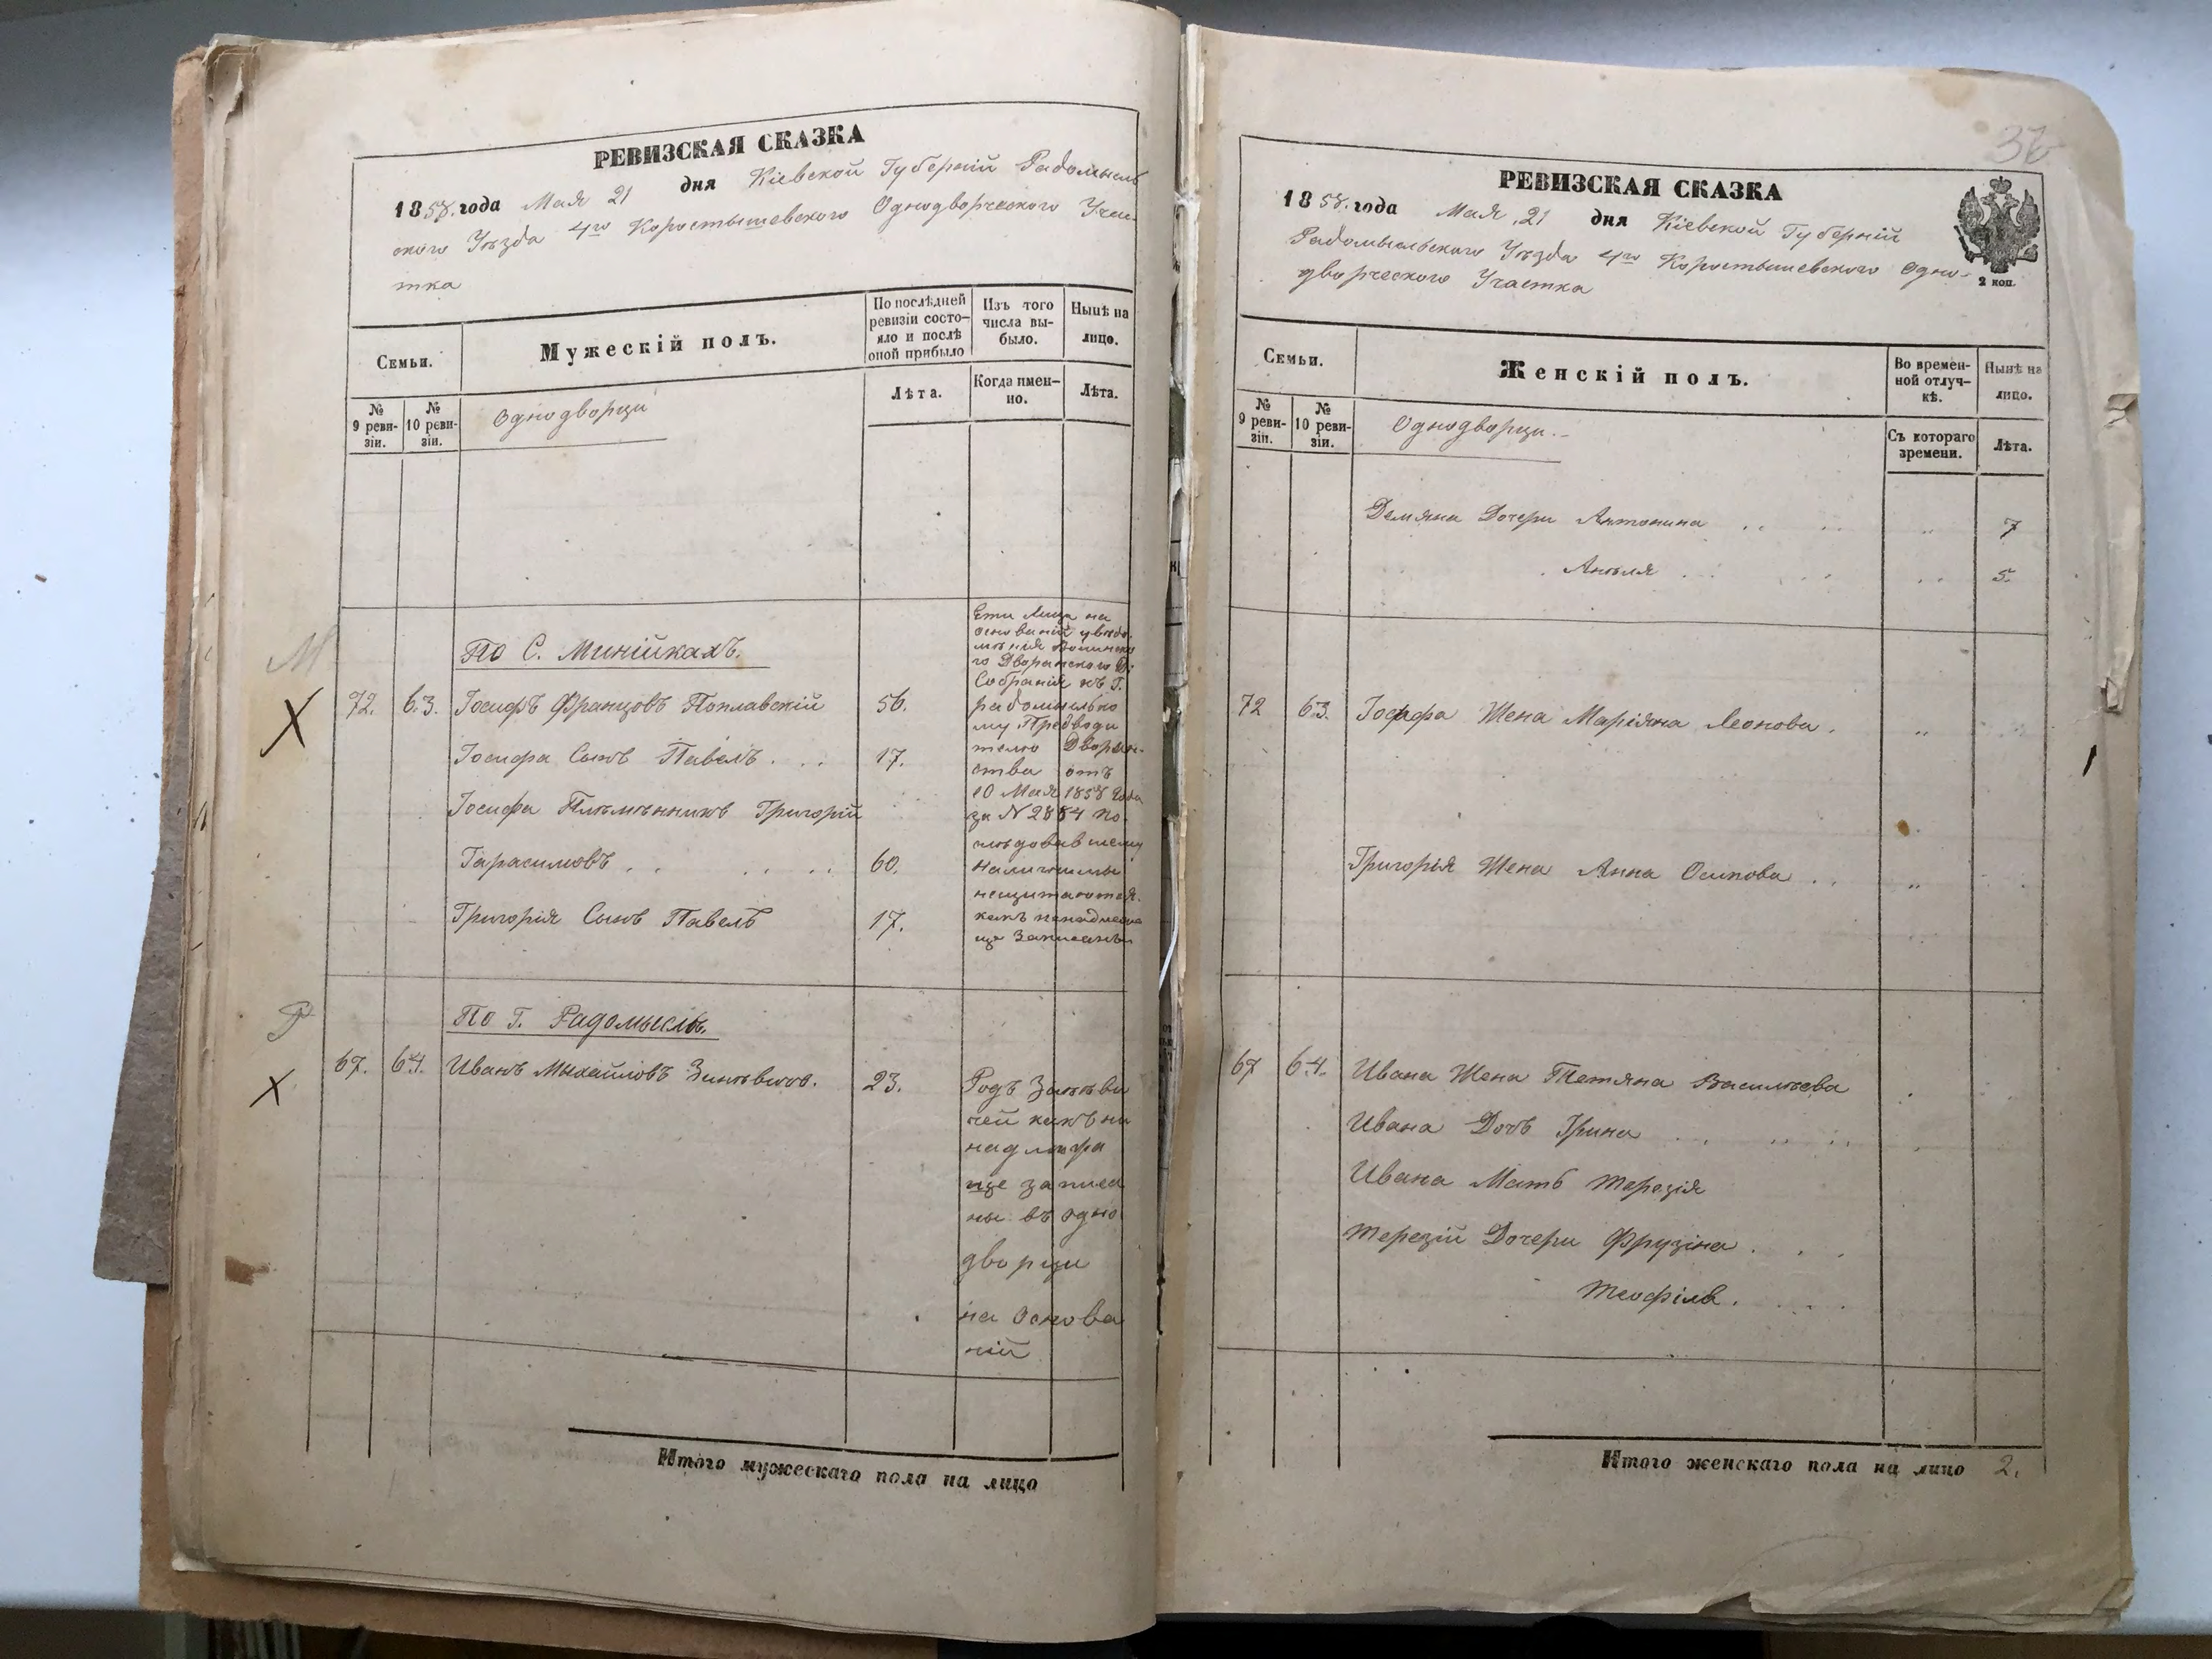 РЕВИЗСКАЯ СКАЗКА
1858. года Мая 21 дня Кіевской Губерній Радомысль
ского Уѣзда 4го Коростышевского Однодворческого Учас
тка
Семьи.
Мужескій полъ.
По послѣдней
ревизіи состо-
яло и послѣ
оной прибыло
Изъ того
числа вы-
было.
Нынѣ на
лицо.
№
9 реви-
зіи.
№
10 реви-
зіи.
Однодворци
Лѣта.
Когда имен-
но.
Лѣта.
М
По С. Минійкахъ.
Ети Лица на
основаній увѣдо-
мленія Волинско
го Дворанского Д:
Собранія къ Г.
радомыслько
му Предводи
телю Дворян-
ства отъ
10 Мая 1858 года
за N 2884 по-
слѣдовавшему
наличными
несщитаются.
какъ ненадлежа
ще Записаны
X 72. 63. Іосифъ Францовъ Поплавскій 56.
Іосифа Сынъ Павелъ . . . 17.
Іосифа Племѣнникъ Григорій
Гарасимовъ . . . . . 60.
Григорія Сынъ Павелъ 17.
Р
По Г. Радомыслѣ.
X 67. 64. Иванъ Михайловъ 23.
Родъ
чей какъ не
надлежа
ще записа
ны въ одно
дворци
на основа
ній
Итого мужескаго пола на лицо
36
РЕВИЗСКАЯ СКАЗКА
1858. года Мая 21 дня Кіевской Губерній
Радомысльского Уѣзда 4го Коростышевского Одно-
дворческого Участка
2 коп.
Семьи.
Женскій полъ.
Во времен-
ной отлуч-
кѣ.
Нынѣ на
лицо.
№
9 реви-
зіи.
№
10 реви-
зіи.
Однодворци.
Съ котораго
времени.
Лѣта.
Демяна Дочери Антонина . . . . „ 7
Анѣля . . . . „ 5.
72 63. Іосифа Жена Маріяна Леонова . „
Григорія Жена Анна Осипова . . „
67 64. Ивана Жена Тетяна Васильева
Ивана Дочь Ірина . . . . .
Ивана Мать Терезія
Терезій Дочери Фрузіна . . .
Теофіля . . . . .
Итого женскаго пола на лицо 2.